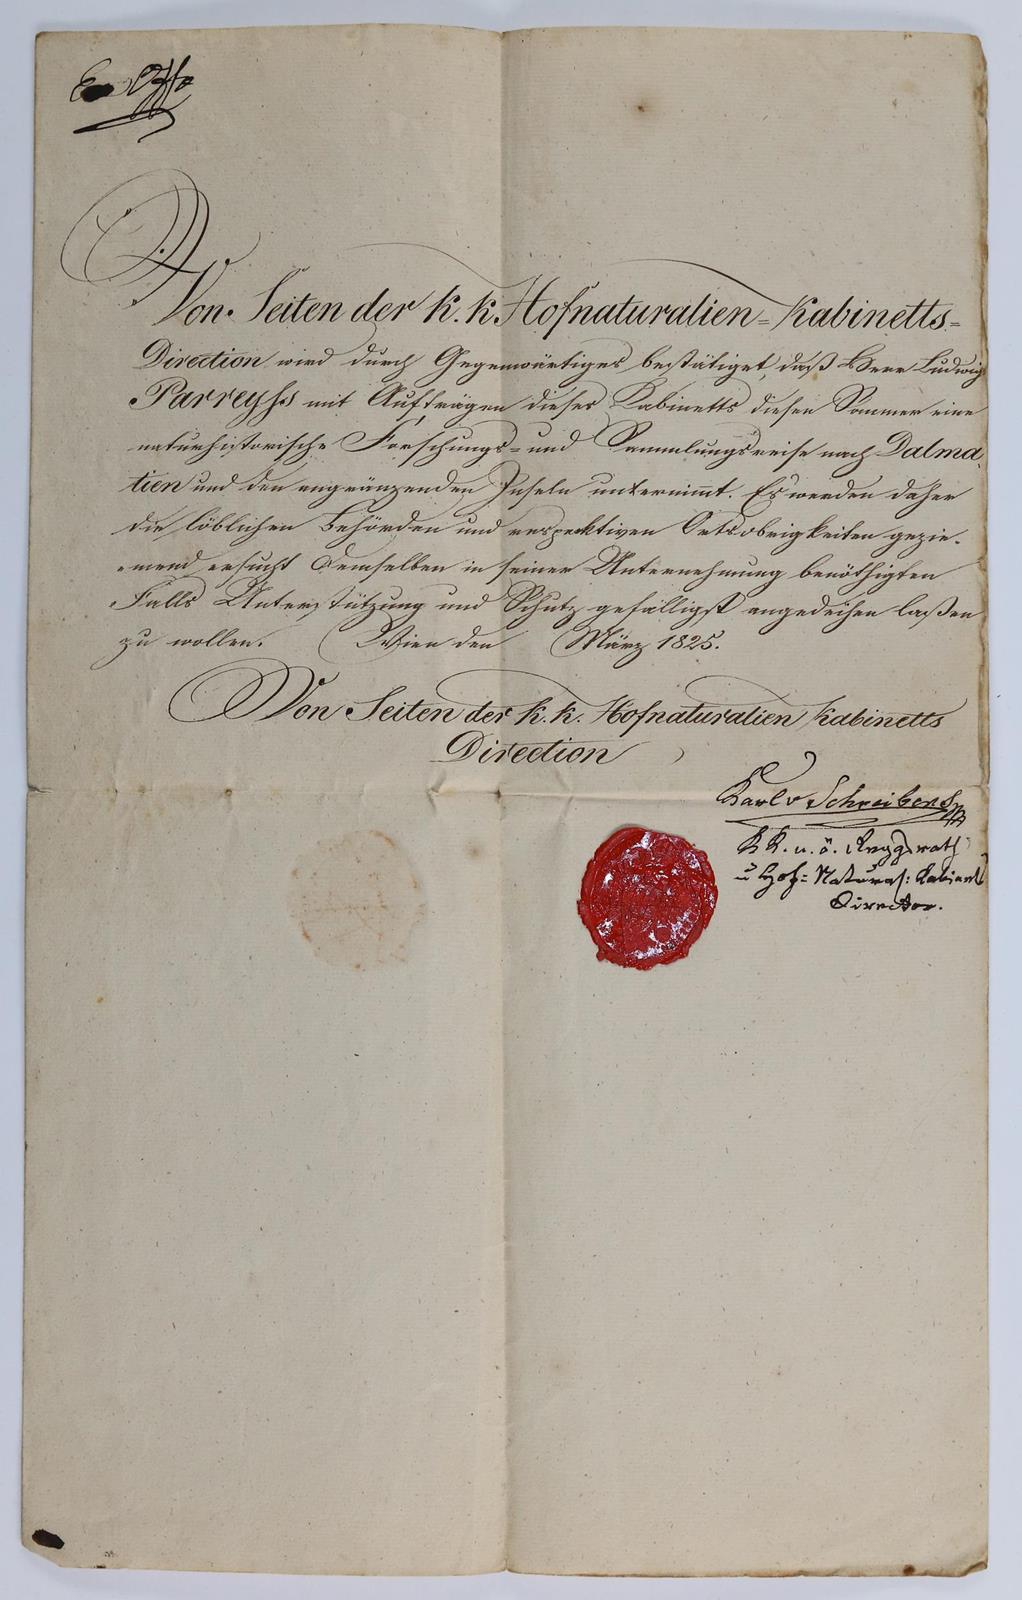 Ex Offo
Von Seiten der k. k. Hofnaturalien=Kabinetts=
Direction wird durch Gegenwärtiges bestätiget, daß Herr Ludwig
Parreyss mit Aufträgen dieses Kabinetts diesen Sommer eine
naturhistorische Forschungs= und Sammlungsreise nach Dalma=
tien und den angränzenden Inseln unternimmt. Es werden daher
die löblichen Behörden und respektiven Ortsobrigkeiten gezie=
mend ersucht demselben in seiner Unternehmung benöthigten
Falls Unterstützung und Schutz gefälligst angedeihen laßen
zu wollen. Wien den März 1825.
Von Seiten der k. k. Hofnaturalien Kabinetts
Direction
Karl v Schreibers
K K. n. ö. Reggsrath
u Hof= Natural: Kabinets
Director.